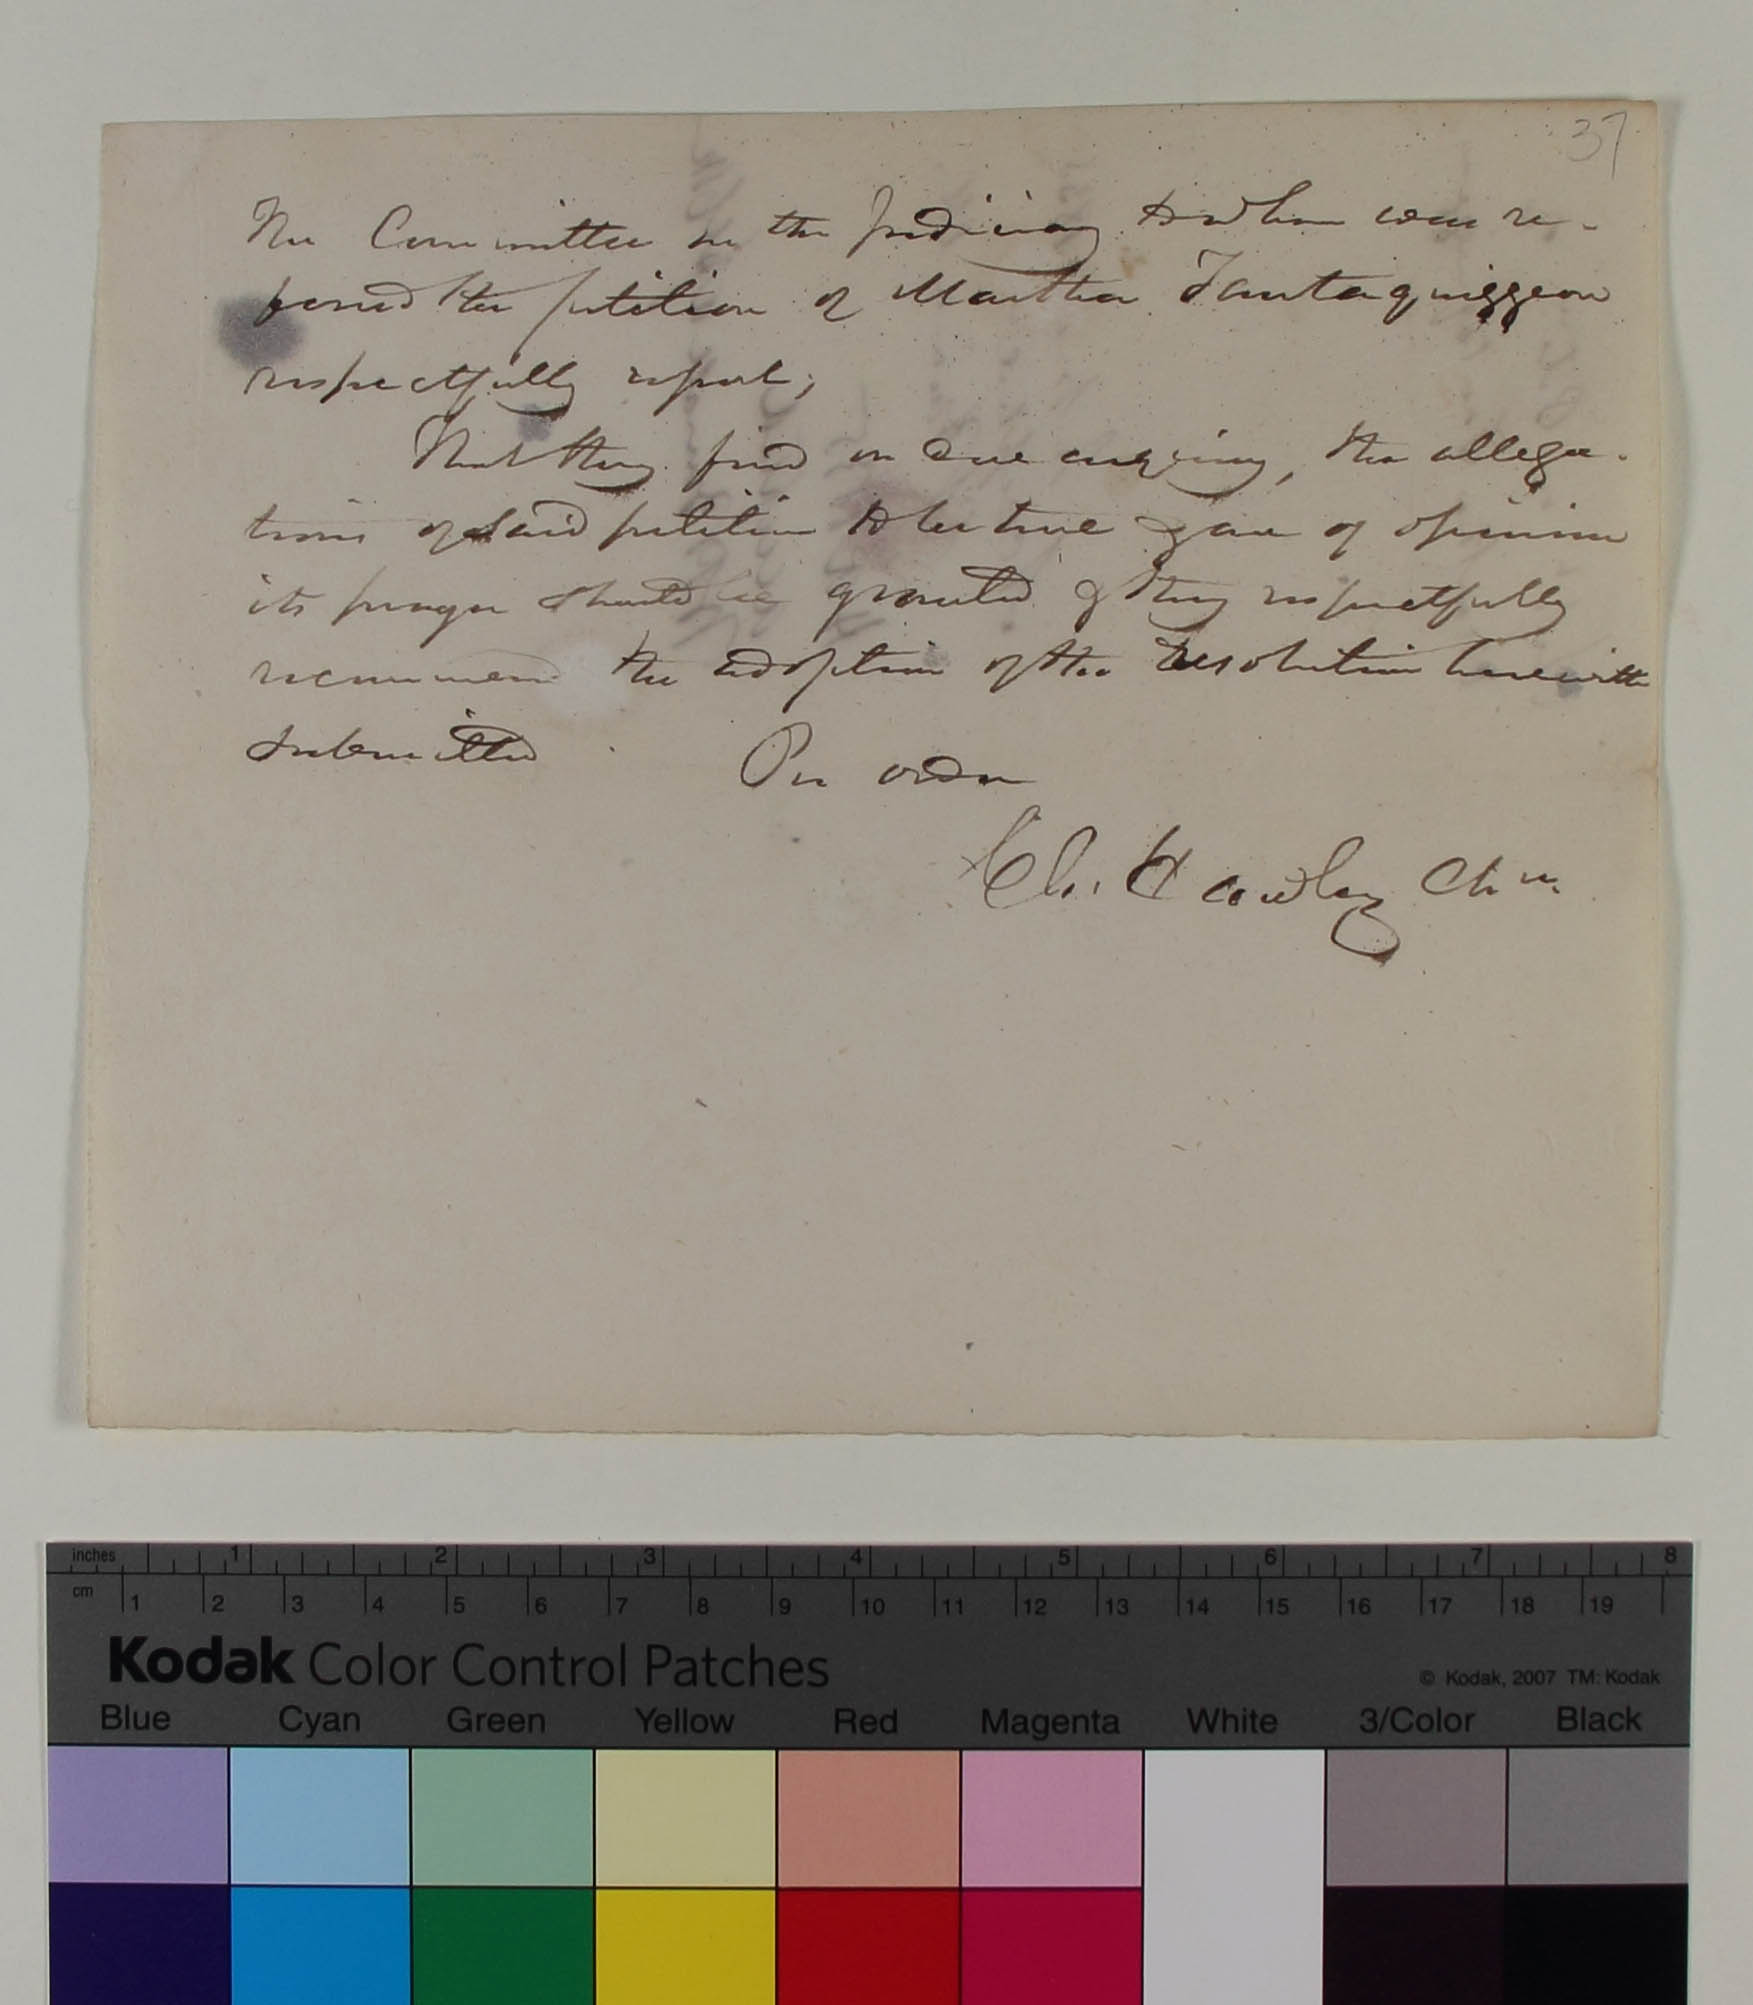 37
The Committee on the Judiciary to whom was re-
ferred the petition of Martha Tantaquiggeon
respectfully report;
That they find on due enquiry, the allega-
tions of said petition to be true & are of opinion
its prayer should be granted & they respectfully
recommend the adoption of the resolution herewith
submitted Per order
Ch. Hawley Chn.
inches 1 2 3 4 5 6 7 8
cm 1 2 3 4 5 6 7 8 9 10 11 12 13 14 15 16 17 18 19
Kodak Color Control Patches © Kodak, 2007 TM: Kodak
Blue Cyan Green Yellow Red Magenta White 3/Color Black